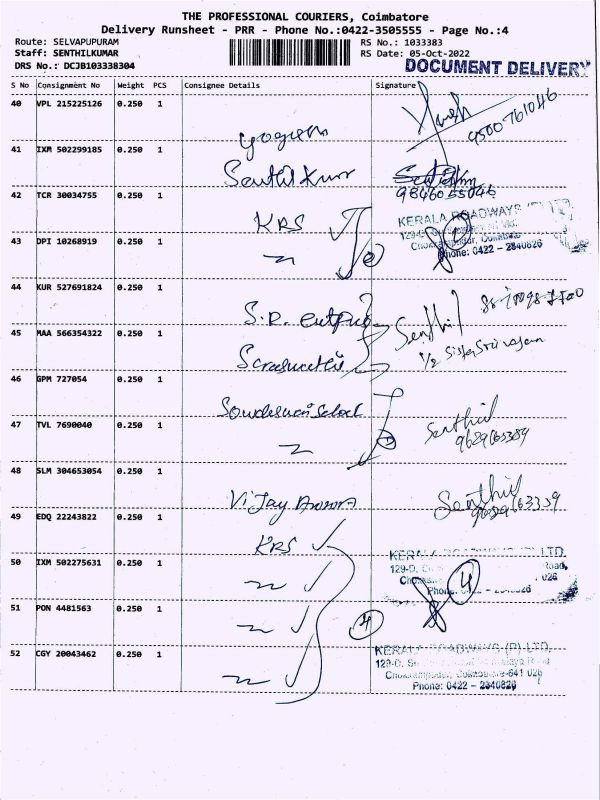 THE PROFESSIONAL COURIERS, Coimbatore
Delivery Runsheet - PRR - Phone No.:0422-3505555 - Page No.:4
Route: SELVAPUPURAM RS No.: 1033383
Staff: SENTHILKUMAR RS Date: 05-Oct-2022
DRS No.: DCJB103338304 DOCUMENT DELIVERY
S No Consignment No Weight PCS Consignee Details Signature
40 VPL 215225126 0.250 1
9500761046
41 IXM 502299185 0.250 1
Senthil Kumar
9846055046
42 TCR 30034755 0.250 1
KRS KERALA ROADWAYS (P) LTD
43 DPI 10268919 0.250 1
Phone: 0422 - 2340826
44 KUR 527691824 0.250 1
S.R. Senthil
45 MAA 566354322 0.250 1
46 GPM 727054 0.250 1
47 TVL 7690040 0.250 1
Senthil
9629163359
48 SLM 304653054 0.250 1
Vijay Senthil
9629163359
49 EDQ 22243822 0.250 1
KRS KERALA ROADWAYS (P) LTD.
50 IXM 502275631 0.250 1
129-D, Road,
026
Phone: 0422 - 2340826
4
51 PON 4481563 0.250 1
4
52 CGY 20043462 0.250 1
KERALA ROADWAYS (P) LTD.
129-D, Road
Coimbatore-641 026
Phone: 0422 - 2340826